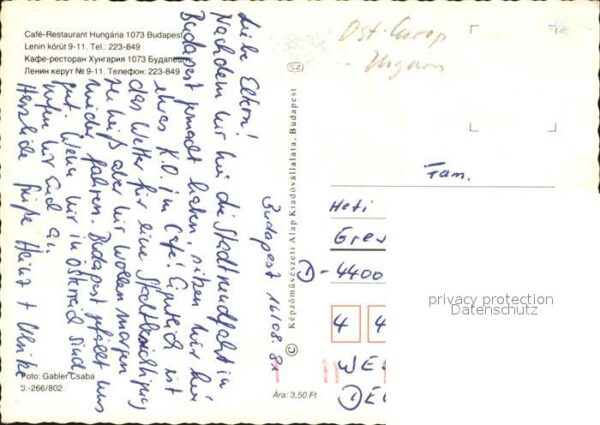 Café-Restaurant Hungária 1073 Budapest
Lenin körút 9-11. Tel.: 223-849
Кафе-ресторан Хунгария 1073 Будапешт
Ленин керут № 9-11. Телефон: 223-849
Budapest 16.08.81
Liebe Eltern!
Nachdem wir hier die Stadtrundfahrt in
Budapest gemacht haben, sitzen wir hier
etwas K.O. im Café! Eigentlich ist
das Wetter für eine Stadtbesichtigung
zu heiß aber wir wollen morgen
wieder fahren. Budapest gefällt uns
gut. Wenn wir in Österreich sind,
rufen wir Euch an.
Herzliche Grüße Heinz + Ulrike
Foto: Gabler Csaba
-266/802.
© Képzőművészeti Alap Kiadóvállalata, Budapest
SZ
Ára: 3,50 Ft
Ost-Europ
- Ungarn
Fam.
Heti
Grev
D-4400
4 4
WE
privacy protection
Datenschutz